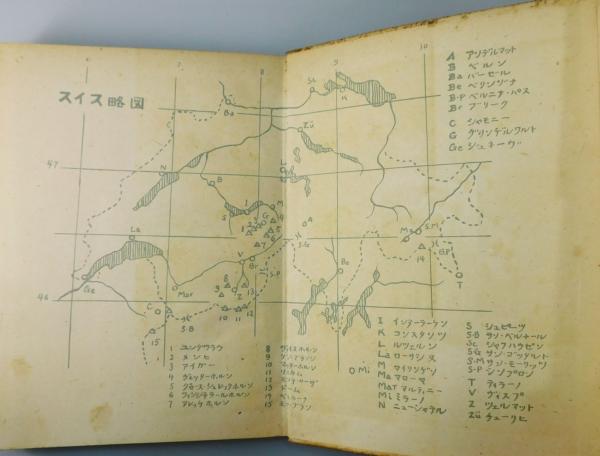 スイス略図
6
7
8
9
10
47
46
A アンデルマット
B ベルン
Ba バーゼル
Be ベリンゾーナ
B-P ベルニナ・パス
Br ブリーク
C シャモニー
G グリンデルワルト
Ge ジュネーヴ
I インターラーケン
K コンスタンツ
L ルツェルン
La ローザンヌ
M マイリンゲン
Ma マローヤ
Mar マルティニー
Mi ミラーノ
N ニューシャテル
S シュピーツ
S-B サン・ベルナール
Sc シャフハウゼン
S-G サン・ゴッタルト
S-M サン・モーリッツ
S-P シンプロン
T ティラーノ
V ヴィスプ
Z ツェルマット
Zü チューリヒ
1 ユングフラウ
2 メンヒ
3 アイガー
4 ヴェッターホルン
5 グロース・シュレックホルン
6 フィンシテラールホルン
7 アレッチホルン
8 ヴァイスホルン
9
10 マッターホルン
11 リスカム
12 モンテ・ローザ
13 ドーム
14 ベルニーナ
15 モン・ブラン
Ba
Sc
K
Zü
N
B
L
La
Ge
Mar
C
S-B
S
I
M
G
A
S-G
V
Br
S-P
Z
Be
Ma
S.M
B.P
T
Mi